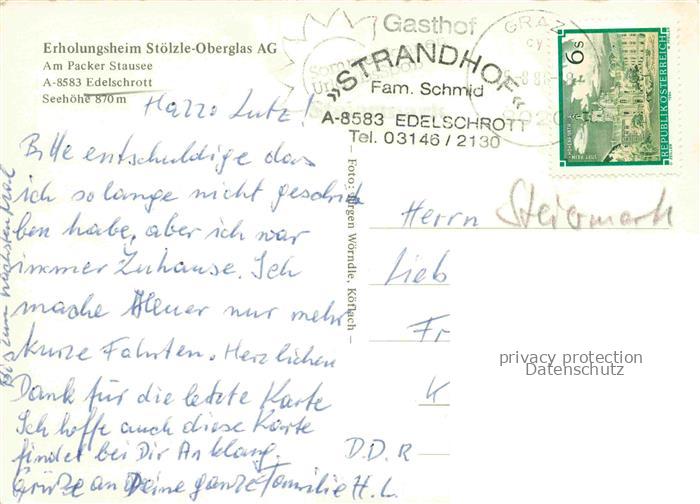 Erholungsheim Stölzle-Oberglas AG
Am Packer Stausee
A-8583 Edelschrott
Seehöhe 870 m
Gasthof
»STRANDHOF«
Fam. Schmid
A-8583 EDELSCHROTT
Tel. 03146 / 2130
GRAZ
8020
6 S
REPUBLIK ÖSTERREICH
Hallo Lutz!
Bitte entschuldige das
ich so lange nicht geschrie
ben habe, aber ich war
immer Zuhause. Ich
mache Heuer nur mehr
kurze Fahrten. Herzlichen
Dank für die letzte Karte
Ich hoffe auch diese Karte
findet bei Dir Anklang.
Grüße an Deine ganze Familie H. L.
Bis zum nächsten Mal
Foto: Jürgen Wörndle, Köflach –
Herrn Steiermark
Lieb
Fr
K
D.D.R
privacy protection
Datenschutz